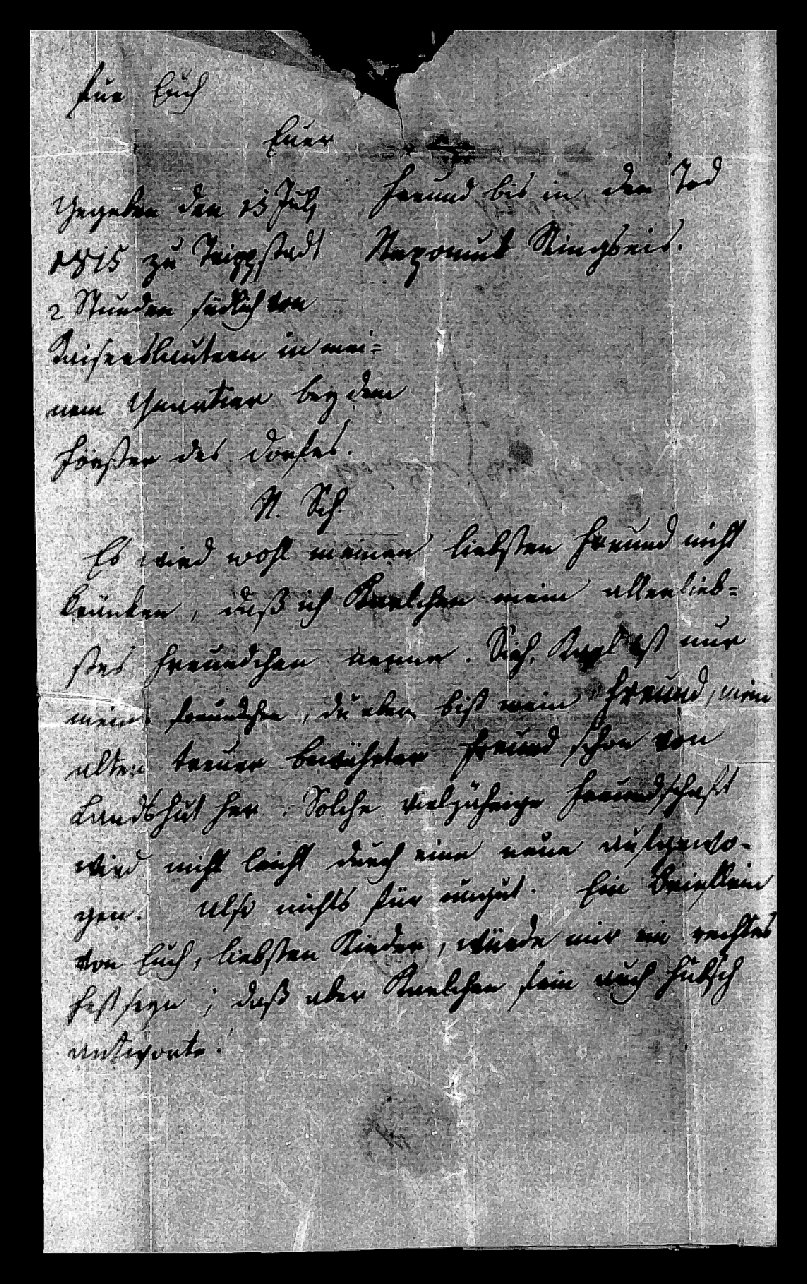 für Euch
Euer
Gegeben den 13 July Freund bis in den Tod
1815 zu Trippstadt Nepomuk Ringseis.
2 Stunden südlich von
Kaiserslautern in mei=
nem Quartier bey dem
Förster des Dorfes.
N. Sch.
Es wird wohl meinen liebsten Freund nicht
kränken, daß ich Karlchen mein allerlieb=
stes Freundchen nenne. Sieh, Karl ist nur
mein Freundchen, du aber bist mein Freund, mein
alter treuer bewährter Freund schon von
Landshut her. Solche vieljährige Freundschaft
wird nicht leicht durch eine neue aufgewo=
gen. Also nichts für ungut. Ein Brieflein
von Euch, liebsten Kinder, würde mir ein rechtes
Fest seyn; daß aber Karlchen fein auch hübsch
antworte!